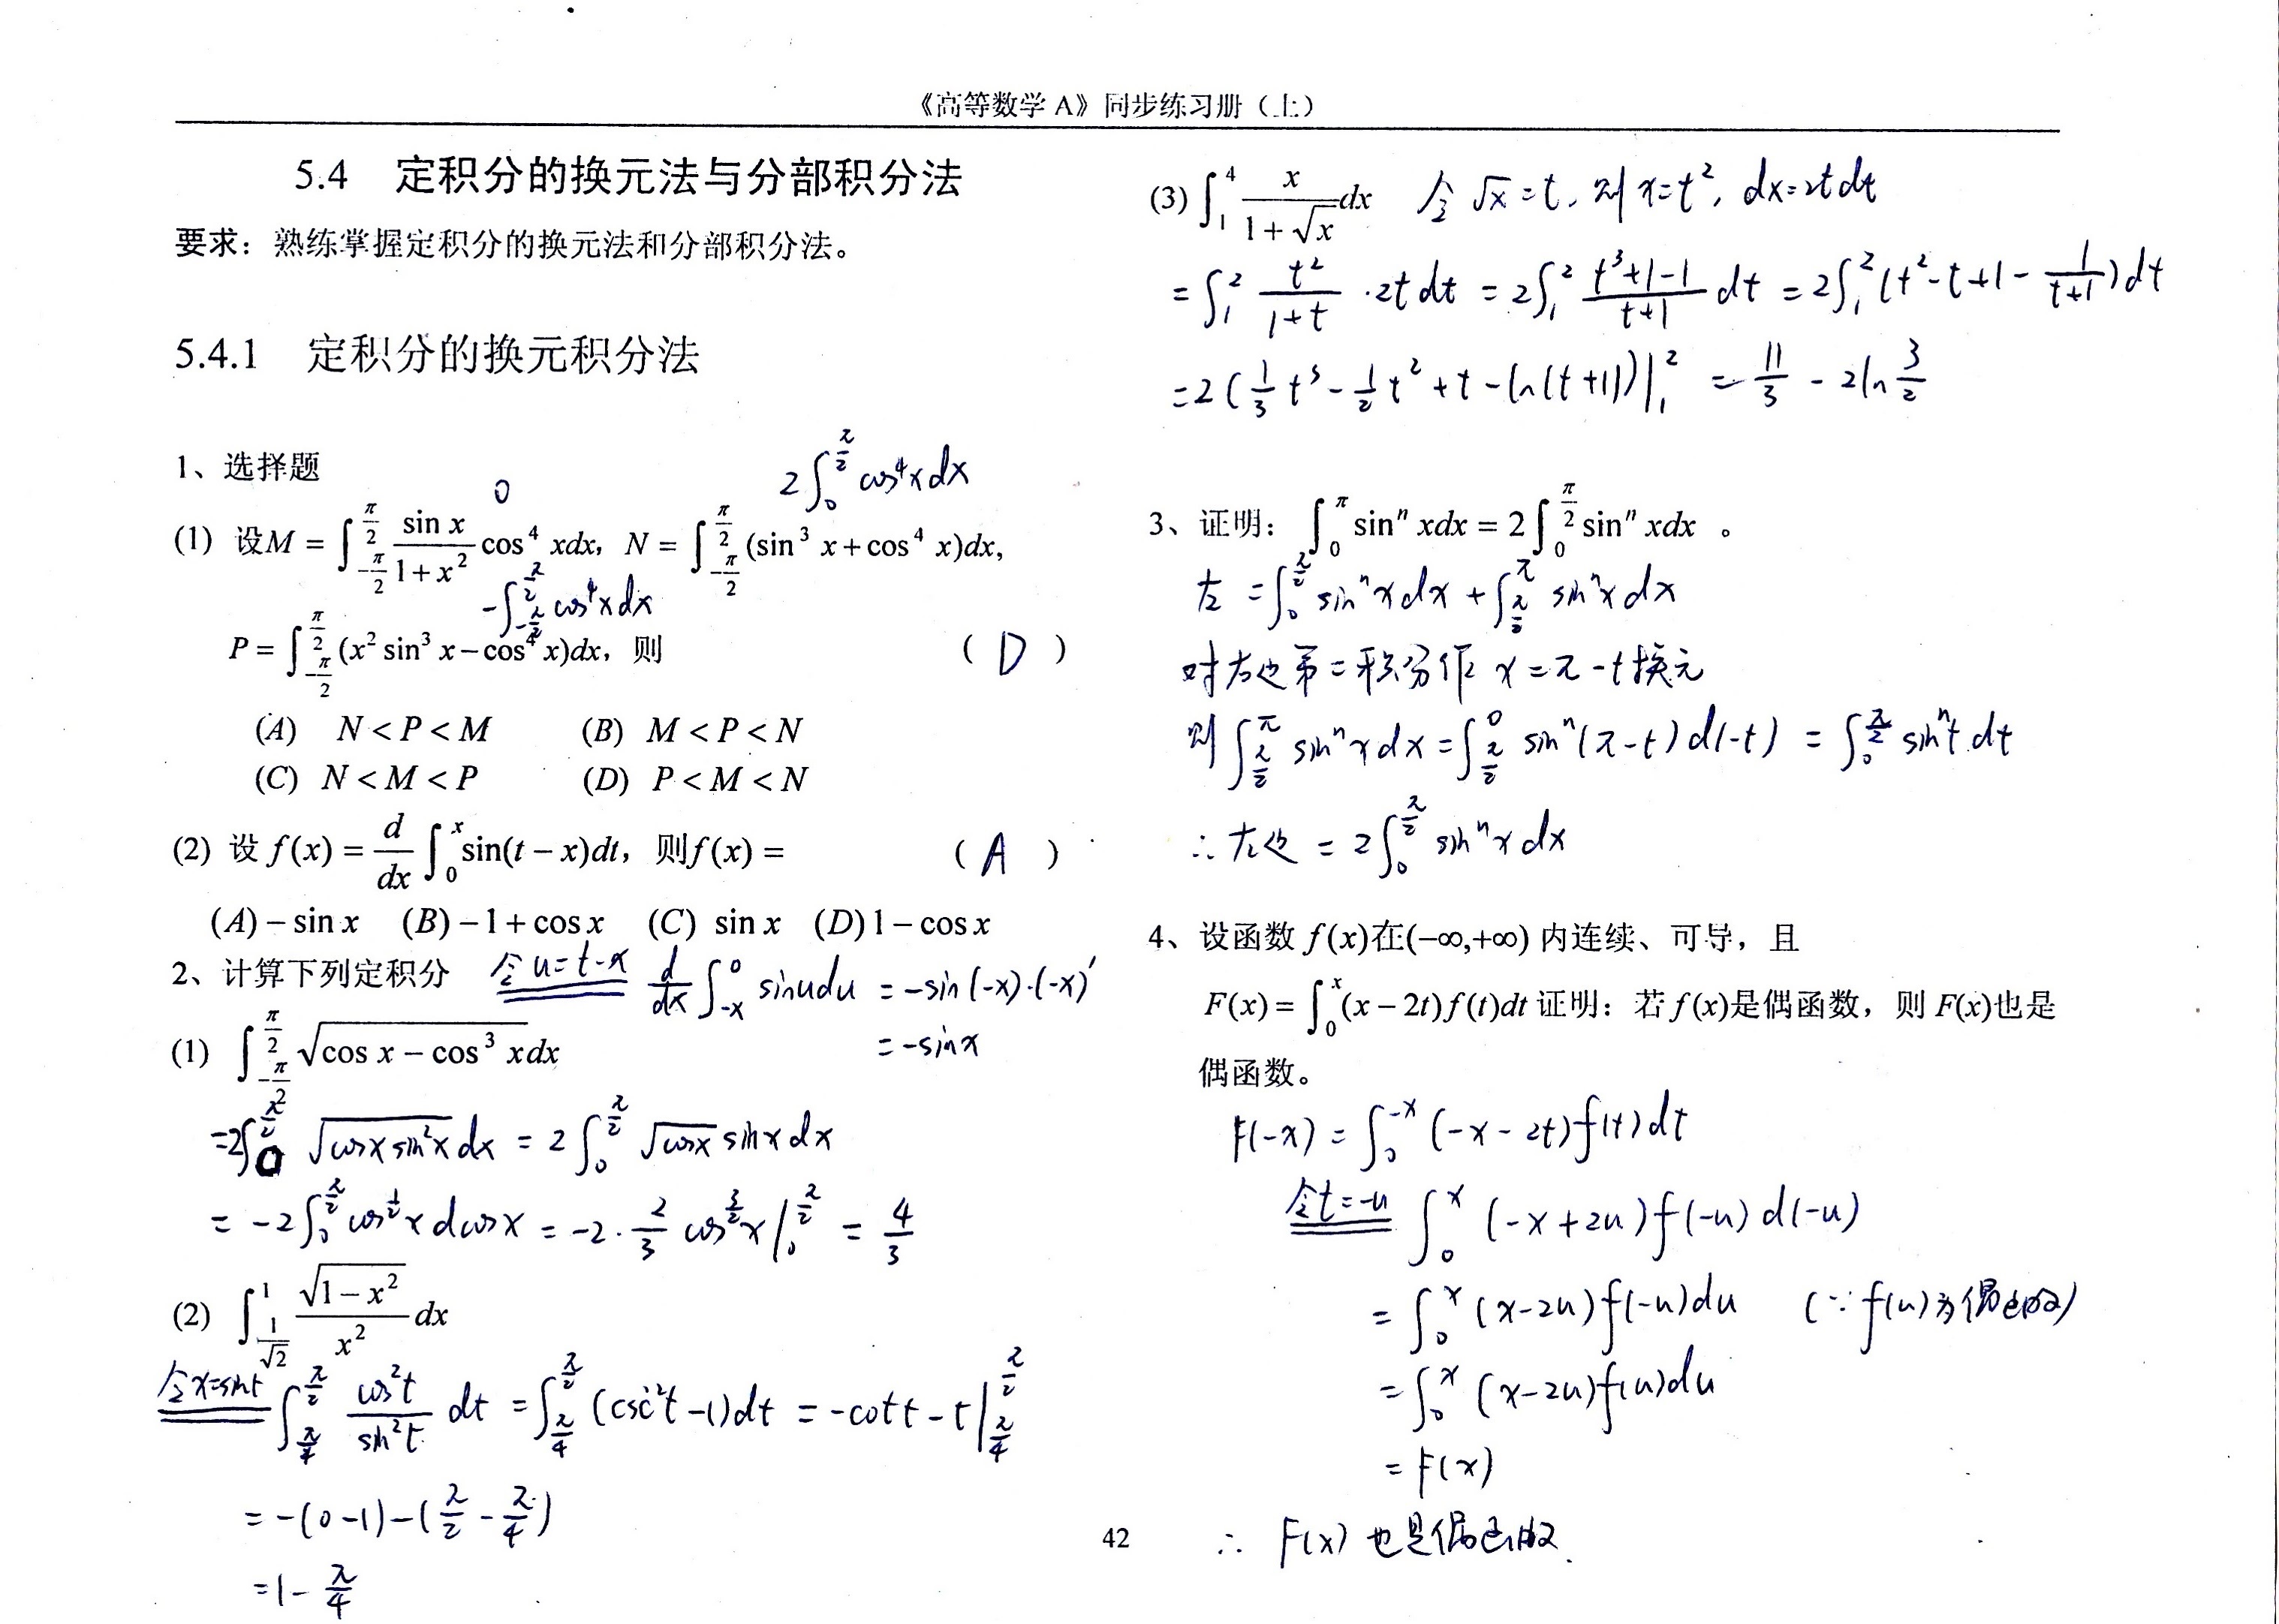 《高等数学 A》同步练习册（上）
5.4 定积分的换元法与分部积分法
要求：熟练掌握定积分的换元法和分部积分法。
5.4.1 定积分的换元积分法
1、选择题
0
2∫₀^{π/2} cos⁴x dx
(1) 设M = ∫_{-π/2}^{π/2} \frac{sin x}{1+x²} cos⁴ xdx, N = ∫_{-π/2}^{π/2} (sin³ x+cos⁴ x)dx,
-∫_{-π/2}^{π/2} cos⁴x dx
P = ∫_{-π/2}^{π/2} (x² sin³ x−cos⁴ x)dx，则 （ D ）
(A) N < P < M (B) M < P < N
(C) N < M < P (D) P < M < N
(2) 设 f(x) = \frac{d}{dx} ∫₀^x sin(t − x)dt，则f(x) = （ A ）
(A) − sin x (B) −1+cos x (C) sin x (D) 1−cos x
2、计算下列定积分
令u=t-x \frac{d}{dx} ∫_{-x}^0 sinu du = -sin(-x)·(-x)′
= -sinx
(1) ∫_{-π/2}^{π/2} √(cos x − cos³ x)dx
=2∫₀^{π/2} √(cosx sin²x) dx = 2∫₀^{π/2} √(cosx) sinx dx
= -2∫₀^{π/2} cos^{1/2}x dcosx = -2·\frac{2}{3} cos^{3/2}x |₀^{π/2} = \frac{4}{3}
(2) ∫_{1/√2}^1 \frac{√(1−x²)}{x²} dx
令x=sint ∫_{π/4}^{π/2} \frac{cos²t}{sin²t} dt = ∫_{π/4}^{π/2} (csc²t-1)dt = -cott - t |_{π/4}^{π/2}
= -(0-1)-(\frac{π}{2} - \frac{π}{4})
=1- \frac{π}{4}
(3) ∫₁⁴ \frac{x}{1+√x} dx 令 √x=t, 则 x=t², dx=2tdt
= ∫₁² \frac{t²}{1+t} ·2t dt = 2∫₁² \frac{t³+1-1}{t+1} dt = 2∫₁² (t²-t+1- \frac{1}{t+1})dt
=2(\frac{1}{3}t³-\frac{1}{2}t²+t-ln(t+1))|₁² = \frac{11}{3} - 2ln\frac{3}{2}
3、证明： ∫₀^π sinⁿ xdx = 2∫₀^{π/2} sinⁿ xdx 。
左 =∫₀^{π/2} sinⁿx dx + ∫_{π/2}^π sinⁿx dx
对右边第二积分作 x=π-t 换元
则 ∫_{π/2}^π sinⁿx dx = ∫_{π/2}^0 sinⁿ(π-t) d(-t) = ∫₀^{π/2} sinⁿt dt
∴ 左边 = 2∫₀^{π/2} sinⁿx dx
4、设函数 f(x)在(−∞,+∞) 内连续、可导，且
F(x) = ∫₀^x (x − 2t)f(t)dt 证明：若 f(x)是偶函数，则 F(x)也是
偶函数。
F(-x) = ∫₀^{-x} (-x-2t)f(t)dt
令t=-u ∫₀^x (-x+2u)f(-u) d(-u)
= ∫₀^x (x-2u)f(-u)du (∵f(u)为偶函数)
= ∫₀^x (x-2u)f(u)du
= F(x)
∴ F(x) 也是偶函数.
42